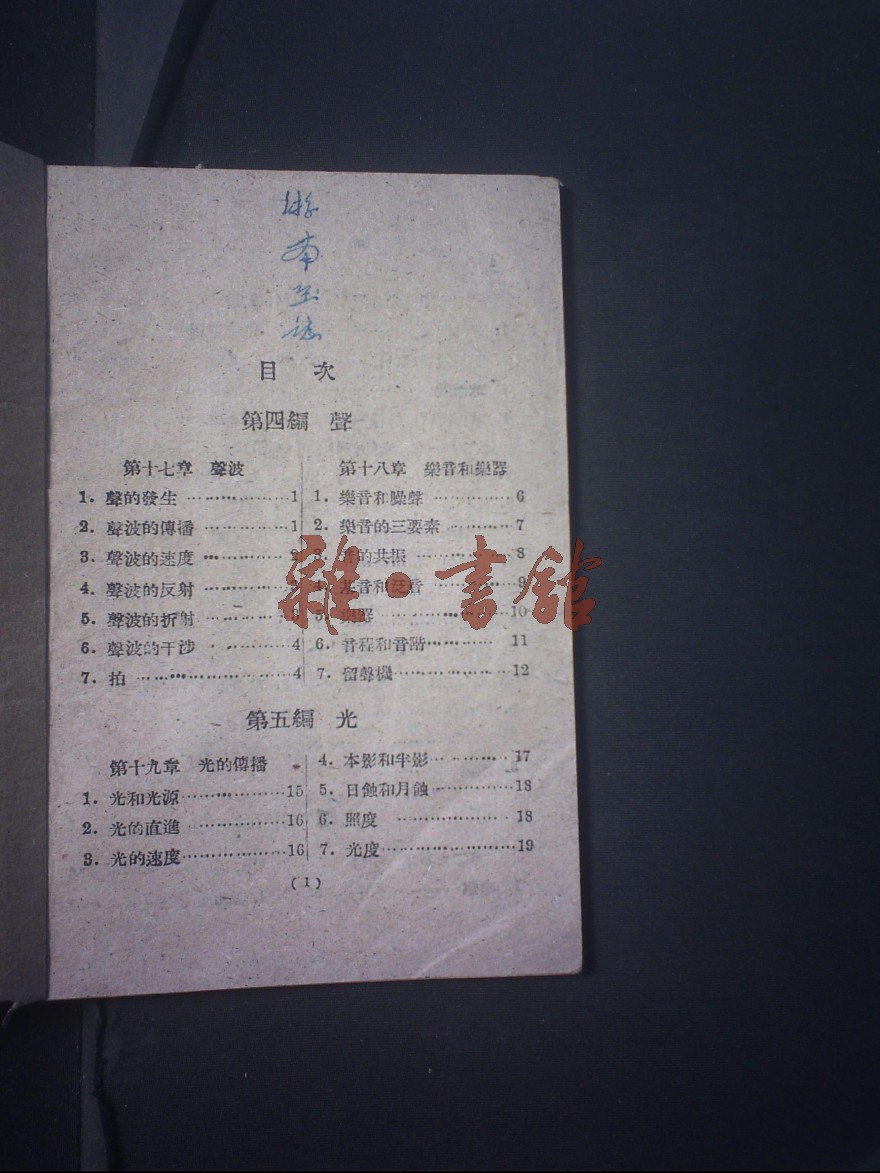 目 次
第四編 聲
第十七章 聲波
1. 聲的發生 ………………1
2. 聲波的傳播 ……………1
3. 聲波的速度 ……………2
4. 聲波的反射 ……………
5. 聲波的折射 ……………
6. 聲波的干涉 ……………4
7. 拍 ………………………4
第十八章 樂音和樂器
1. 樂音和噪聲 ……………6
2. 樂音的三要素 …………7
3. 音的共振 ………………8
4. 基音和泛音 ……………9
5. 樂器 ……………………10
6. 音程和音階 ……………11
7. 留聲機 …………………12
雜·書館
第五編 光
第十九章 光的傳播
1. 光和光源 ………………15
2. 光的直進 ………………16
3. 光的速度 ………………16
4. 本影和半影 ……………17
5. 日蝕和月蝕 ……………18
6. 照度 ……………………18
7. 光度 ……………………19
(1)